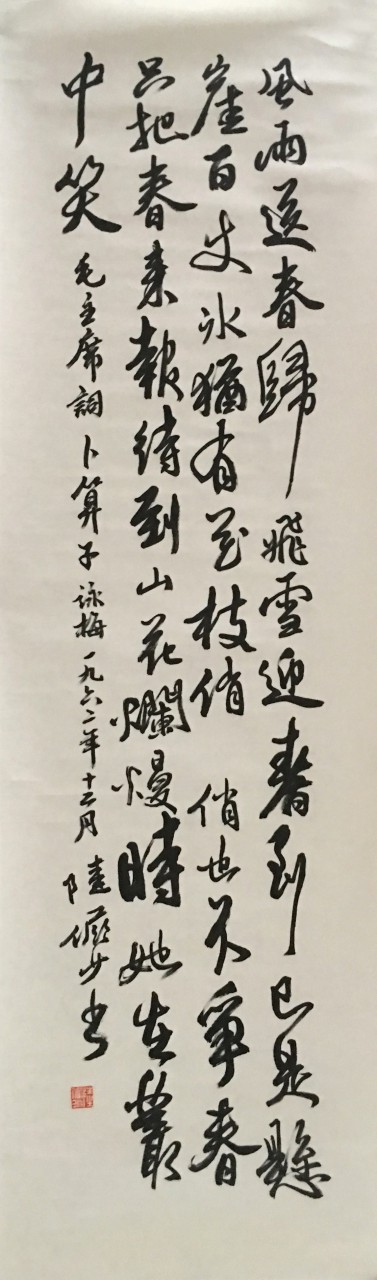 風雨送春歸飛雪迎春到已是懸
崖百丈冰猶有花枝俏 俏也不爭春
只把春来報待到山花爛熳時她在叢
中笑 毛主席詞卜算子詠梅一九六二年十二月陸儼少書